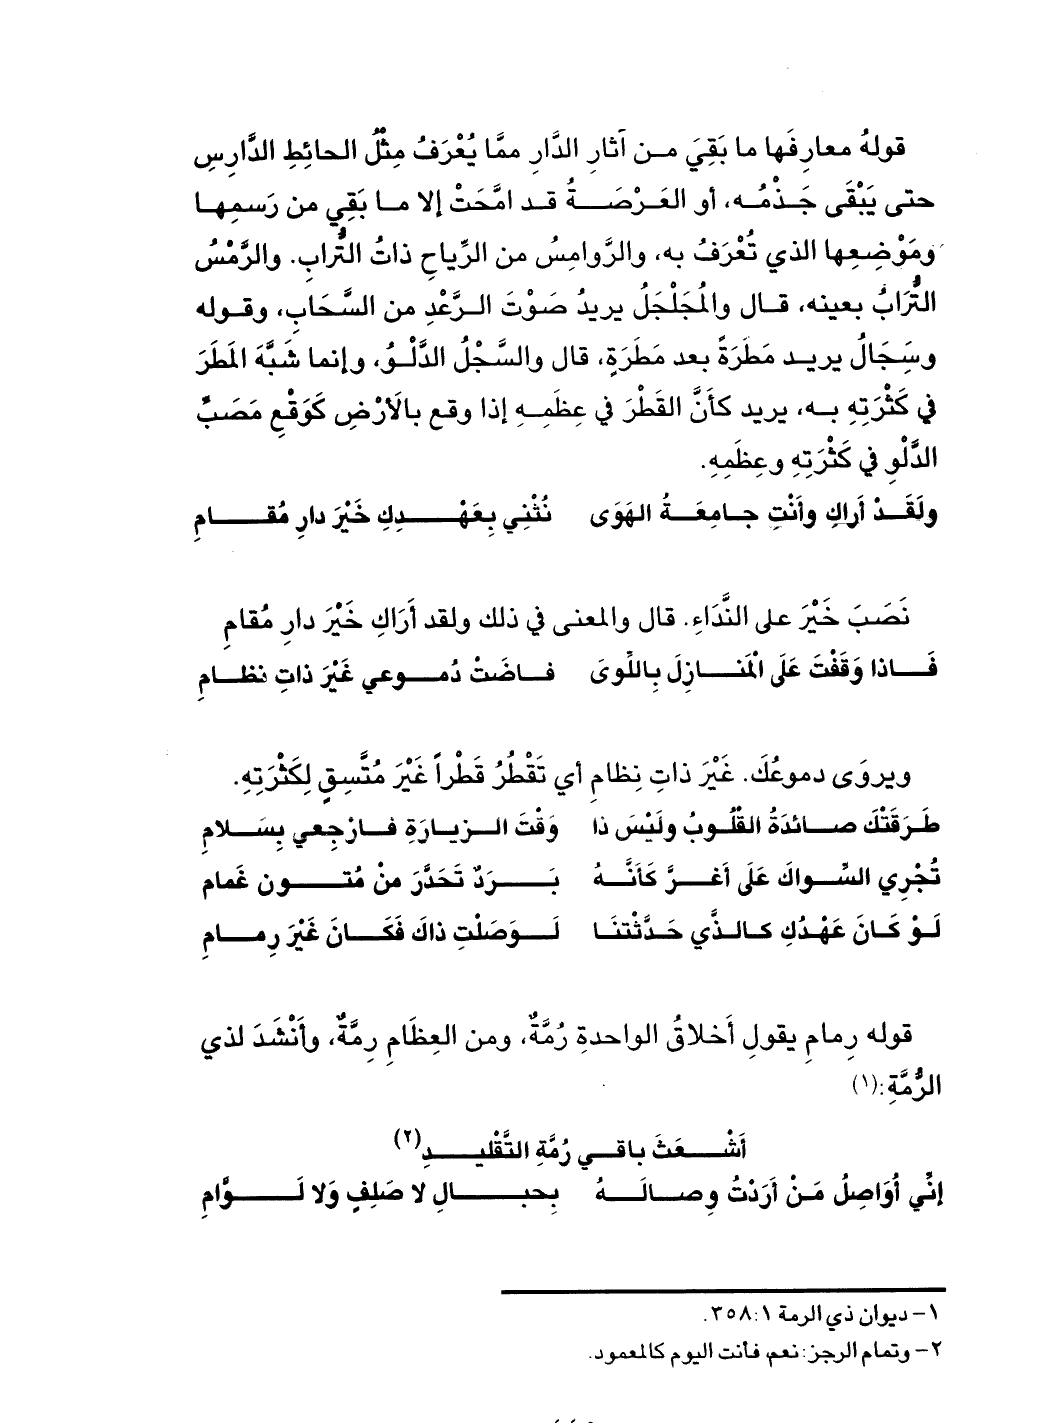 قولهُ معارِفَها ما بَقِيَ مـن آثارِ الدَّارِ ممَّا يُعْرَفُ مِثْلُ الحائِطِ الدَّارِسِ
حتى يَبْقَى جَـذْمُـه، أو العَـرْصَـــةُ قـد امَّحَتْ إلا مــا بَقِي من رَسمِهــا
ومَوْضِعِها الذي تُعْرَفُ به، والرَّوامِسُ من الرِّياحِ ذاتُ التُّرابِ. والرَّمْسُ
التُّرَابُ بعينه، قــال والمُجَلْجَلُ يريدُ صَوْتَ الـرَّعْدِ من السَّحَابِ، وقـوله
وسَجَالُ يريـد مَطَرَةً بعد مَطَرَةٍ، قال والسَّجْلُ الدَّلْـوُ، وإنما شَبَّهَ المَطَرَ
في كَثْرَتِهِ بـه، يريد كأنَّ القَطْرَ في عِظمِـهِ إذا وقع بالأرْضِ كَوَقْعِ مَصَبِّ
الدَّلْوِ في كَثْرَتِهِ وعِظَمِهِ.
ولَقَــدْ أَراكِ وأنْتِ جـامِعَـــةُ الهَوَى نُثْنِي بِعَهْــــدِكِ خَيْرَ دارِ مُقـــــامِ
نَصَبَ خَيْرَ على النَّدَاءِ. قال والمعنى في ذلك ولقد أَرَاكِ خَيْرَ دارِ مُقامِ
فَـــاذا وَقَفْتَ عَلَى الْمَنـــازِلَ بِاللِّوىَ فــاضَتْ دُمــوعي غَيْرَ ذاتِ نظــامِ
ويروَى دموعُكَ. غَيْرَ ذاتِ نِظامِ أي تَقْطُرُ قَطْراً غَيْرَ مُتَّسِقٍ لِكَثْرَتِهِ.
طَـرَقَتْكَ صــائدَةُ القُلُوبُ ولَيْسَ ذا وَقْتَ الـزيـارَةِ فــارْجِعي بِسَـــلامِ
تُجْرِي السِّـــواكَ عَلَى أغَــرَّ كَأنَّــهُ بَـــــرَدٌ تَحَدَّرَ مِنْ مُتــــون غَمام
لَـوْ كَـانَ عَهْدُكِ كـالـذَّي حَـدَّثْتنَـا لَـــوَصَلْتِ ذاكَ فَكَـــانَ غَيْرَ رِمـــامِ
قوله رِمامِ يقولِ أَخلاقُ الواحدةِ رُمَّةٌ، ومن العِظَامِ رِمَّةٌ، وأَنْشَدَ لذي
الرُّمَّةِ:(١)
أَشْــــعَثَ باقــي رُمَّةِ التَّقْليـــــدِ(٢)
إنِّي أُوَاصِلُ مَـنْ أَرَدْتُ وِصــالَــــهُ بِحبـــــالِ لا صَلِفٍ وَلا لَـــــوَّامِ
١- ديوان ذي الرمة ١:٣٥٨.
٢- وتمام الرجز: نعم، فأنت اليوم كالمعمود.